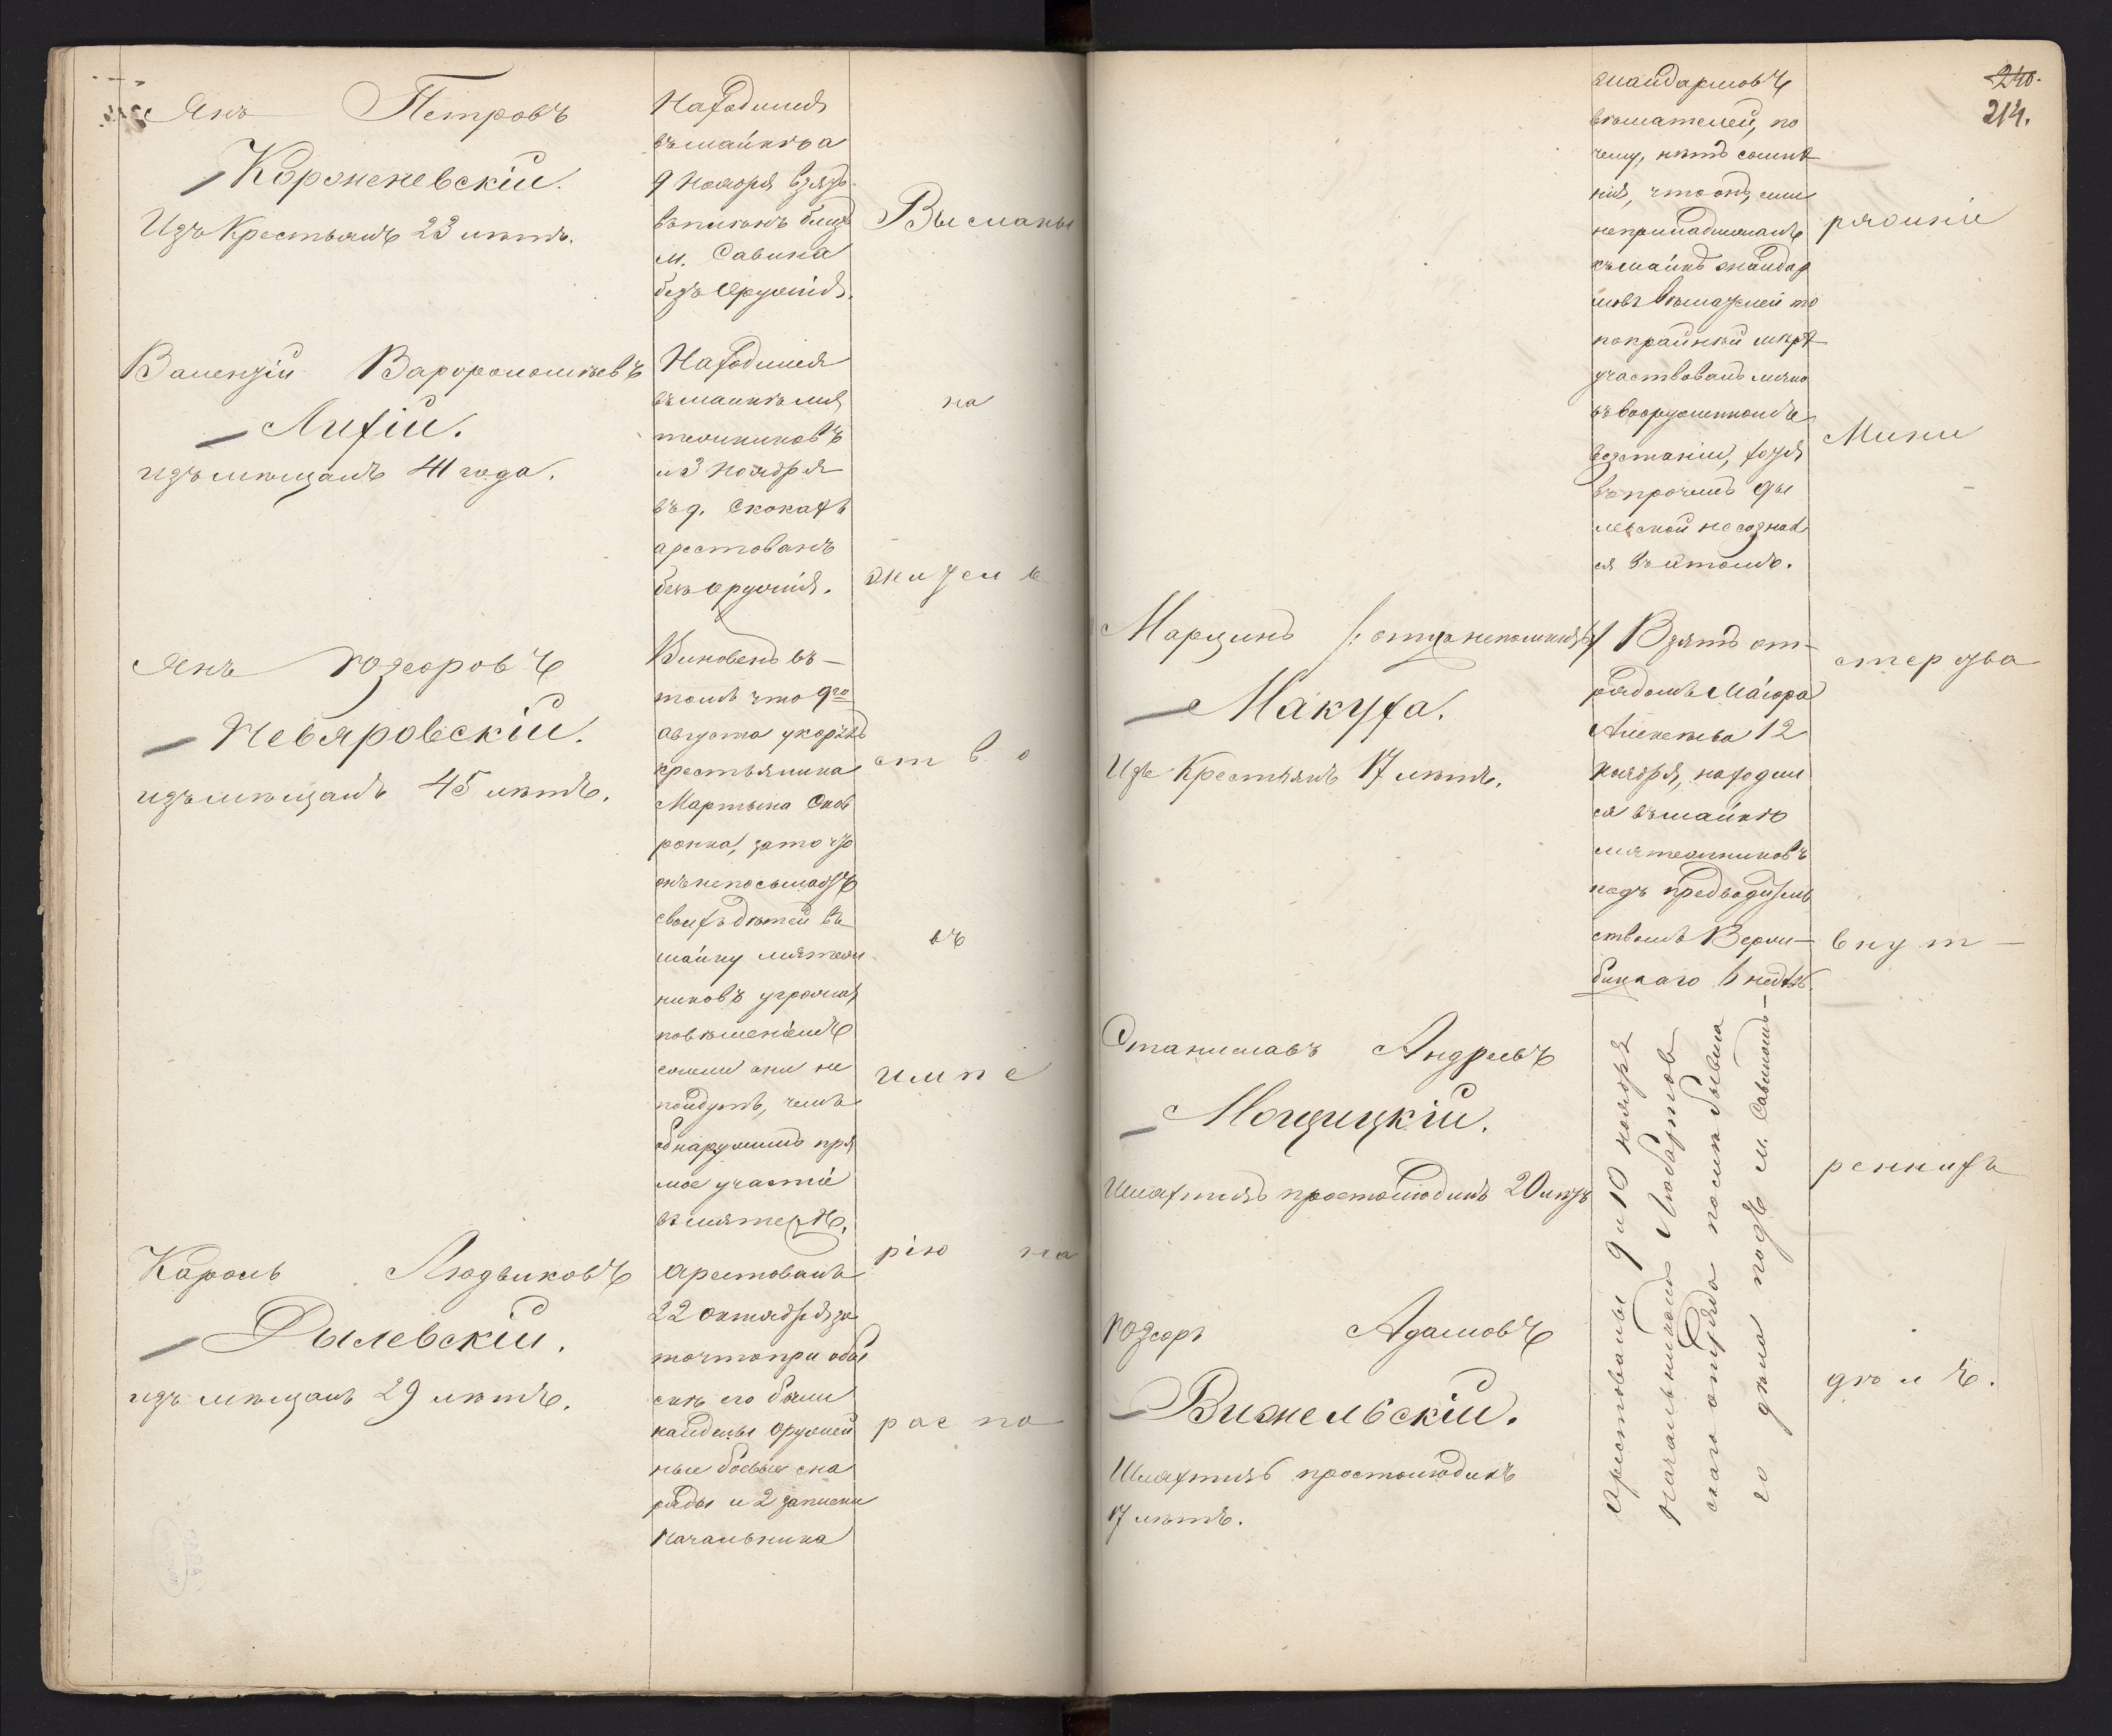 Янъ Петровъ
Короженевскій.
Изъ Крестьянъ 23 лѣтъ.
Находился
въ шайкѣ а
9 Ноября взятъ
въ плѣнъ близь
м. Савина
безъ Оружія.
Валентій Варфоломѣевъ
Лихій.
изъ мѣщанъ 41 года.
Находился
въ шайкѣ мя
тежниковъ
и 3 Ноября
въ д. Скокахъ
арестованъ
безъ оружія.
Янъ Юзефовъ
Невяровскій.
изъ мѣщанъ 45 лѣтъ.
Виновенъ въ
томъ что 9го
августа укорялъ
крестьянина
Мартына
за то что
онъ не посылаетъ
своихъ дѣтей въ
шайку мятеж
никовъ угрожая
повѣшеніемъ
если они не
пойдутъ, чемъ
обнаружилъ пря
мое участіе
въ мятежѣ.
Кароль Людвиковъ
Дылевскій.
изъ мѣщанъ 29 лѣтъ.
Арестованъ
22 Октября за
то что при обы
скѣ его были
найдены оружей
ные боевые сна
ряды и 2 записки
Начальника
Высланы
на
житель
ство
въ
импе
рію на
распо
240.
214.
жандармовъ
вѣшателей, по
чему, нѣтъ сомнѣ
нія, что онъ, если
не принадлежалъ
къ шайкѣ жандар
мовъ вѣшателей то
по крайней мѣрѣ
участвовалъ лично
въ вооруженномъ
возстаніи, хотя
впрочемъ Ды
левской не сознал
ся въ этомъ.
Марцинъ /: отца не помнитъ :/
Макуха.
Изъ Крестьянъ 17 лѣтъ.
Взятъ от
рядомъ Маіора
12
ноября, находил
ся въ шайкѣ
мятежниковъ
подъ предводитель
ствомъ Верж
бицкаго 6 недѣль.
Станиславъ Андреевъ
Мощицкій.
Шляхтичъ простолюдинъ 20 лѣтъ
Юзефъ Адамовъ
Вижельскій.
Шляхтичъ простолюдинъ
17 лѣтъ.
Арестованы 9 и 10 ноября
Начальникомъ Любартов
скаго отряда послѣ бывша
го дѣла подъ м. Савиномъ
ряженіе
Мини
стерства
внут
реннихъ
дѣлъ.